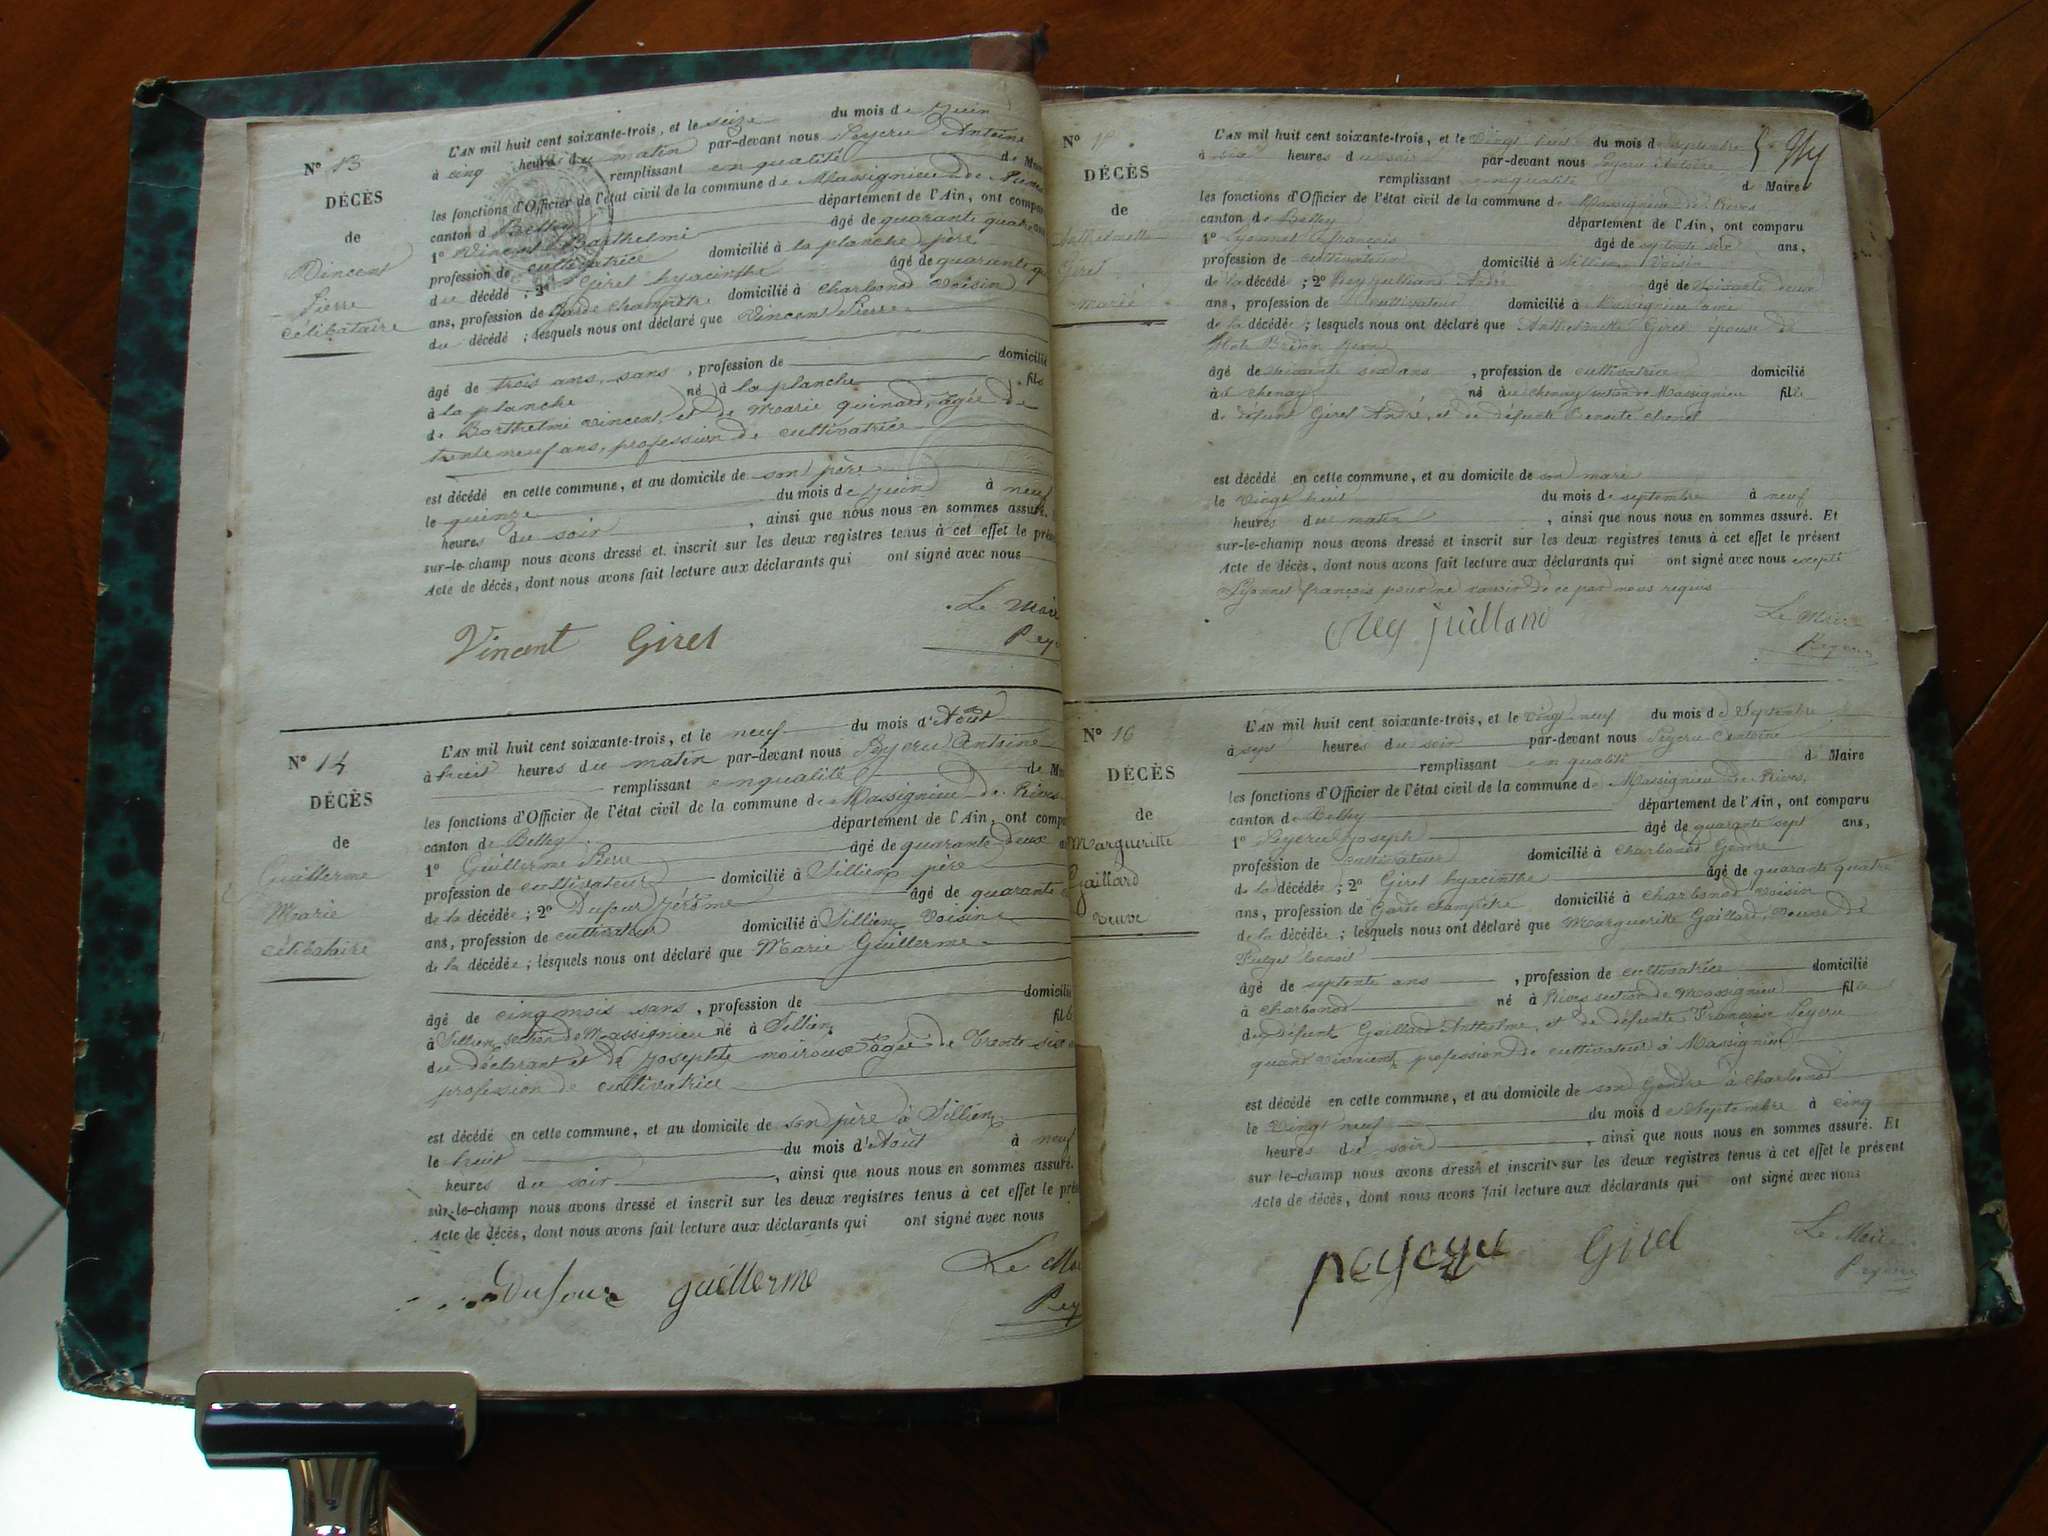 N° 13
DÉCÈS
de
Vincent
Pierre
célibataire
L'AN mil huit cent soixante-trois, et le seize du mois de Juin
à cinq heures du matin par-devant nous Peycru Antoine
remplissant en qualité de Maire
les fonctions d'Officier de l'état civil de la commune de Massignieu de Rives
canton de Belley département de l'Ain, ont compar
1° Vincent Barthelmi âgé de quarante quatre ans
profession de cultivatrice domicilié à la planche père
du décédé ; 2° Girel hyacinthe âgé de quarante qu
ans, profession de Garde champêtre domicilié à charbonod voisin
du décédé ; lesquels nous ont déclaré que Vincent Pierre
âgé de trois ans, sans , profession de domicilié
à la planche né à la planche fils
de Barthelmi vincent, et de Marie quinard, agée de
trente neuf ans, profession de cultivatrice
est décédé en cette commune, et au domicile de son père
le quinze du mois de Juin à neuf
heures du soir , ainsi que nous nous en sommes assuré.
sur-le-champ nous avons dressé et inscrit sur les deux registres tenus à cet effet le prés
Acte de décès, dont nous avons fait lecture aux déclarants qui ont signé avec nous
Le Maire
Vincent Girel Pey
N° 14
DÉCÈS
de
Guillerme
Marie
célibataire
L'AN mil huit cent soixante-trois, et le neuf du mois d'Août
à huit heures du matin par-devant nous Peycru Antoine
remplissant en qualité de Ma
les fonctions d'Officier de l'état civil de la commune de Massignieu de Rives
canton de Belley département de l'Ain, ont compa
1° Guillerme Pierre âgé de quarante deux a
profession de cultivateur domicilié à Sillien père
de la décédée ; 2° Dufour Jérôme âgé de quarante
ans, profession de cultivateur domicilié à Sillien Voisin
de la décédée ; lesquels nous ont déclaré que Marie Guillerme
âgé de cinq mois sans , profession de domicilié
à Sillien section de Massignieu né à Sillien fille
du déclarant et de Josephte moiroux agée de Trente six a
profession de cultivatrice
est décédé en cette commune, et au domicile de son père à Sillien
le huit du mois d'Août à neuf
heures du soir , ainsi que nous nous en sommes assuré.
sur-le-champ nous avons dressé et inscrit sur les deux registres tenus à cet effet le prés
Acte de décès, dont nous avons fait lecture aux déclarants qui ont signé avec nous
Le Mai
Dufour guillerme Pey
N°
DÉCÈS
de
Anthelmette
Girel
marié
L'AN mil huit cent soixante-trois, et le Vingt huit du mois de Septembre
à six heures du soir par-devant nous Peycru Antoine
remplissant en qualité de Maire
les fonctions d'Officier de l'état civil de la commune de Massignieu de Rives
canton de Belley département de l'Ain, ont comparu
1° Lyonnet françois âgé de septente six ans,
profession de cultivateur domicilié à Sillien Voisin
de la décédée ; 2° Rey juilliand André âgé de soixante deux
ans, profession de cultivateur domicilié à Massignieu ami
de la décédée ; lesquels nous ont déclaré que Anthelmette Girel épouse de
âgé de soixante six ans , profession de cultivatrice domicilié
à chenay né au chenay section de Massignieu fille
de défunt Girel André, et de défunte Benoite
est décédé en cette commune, et au domicile de son mari
le Vingt huit du mois de septembre à neuf
heures du matin , ainsi que nous nous en sommes assuré. Et
sur-le-champ nous avons dressé et inscrit sur les deux registres tenus à cet effet le présent
Acte de décès, dont nous avons fait lecture aux déclarants qui ont signé avec nous excepté
Lyonnet françois pour ne savoir de ce par nous requis
Le Maire
Rey juilland Peycru
N° 16
DÉCÈS
de
Margueritte
Gaillard
veuve
L'AN mil huit cent soixante-trois, et le Vingt neuf du mois de Septembre
à sept heures du soir par-devant nous Peycru Antoine
remplissant en qualité de Maire
les fonctions d'Officier de l'état civil de la commune de Massignieu de Rives,
canton de Belley département de l'Ain, ont comparu
1° Peycru Joseph âgé de quarante sept ans,
profession de cultivateur domicilié à Charbonod Gendre
de la décédée ; 2° Girel hyacinthe âgé de quarante quatre
ans, profession de Garde champêtre domicilié à Charbonod voisin
de la décédée ; lesquels nous ont déclaré que Margueritte Gaillard, Veuve de
Puget benoit
âgé de septente ans , profession de cultivatrice domicilié
à Charbonod né à Rives section de Massignieu fille
du défunt Gaillard Anthelme, et de défunte Françoise Peycru
quand vivaient, profession de cultivateur à Massignieu
est décédé en cette commune, et au domicile de son Gendre à Charbonod
le Vingt neuf du mois de Septembre à cinq
heures du soir , ainsi que nous nous en sommes assuré. Et
sur-le-champ nous avons dressé et inscrit sur les deux registres tenus à cet effet le présent
Acte de décès, dont nous avons fait lecture aux déclarants qui ont signé avec nous
Le Maire
peycru Girel Peycru